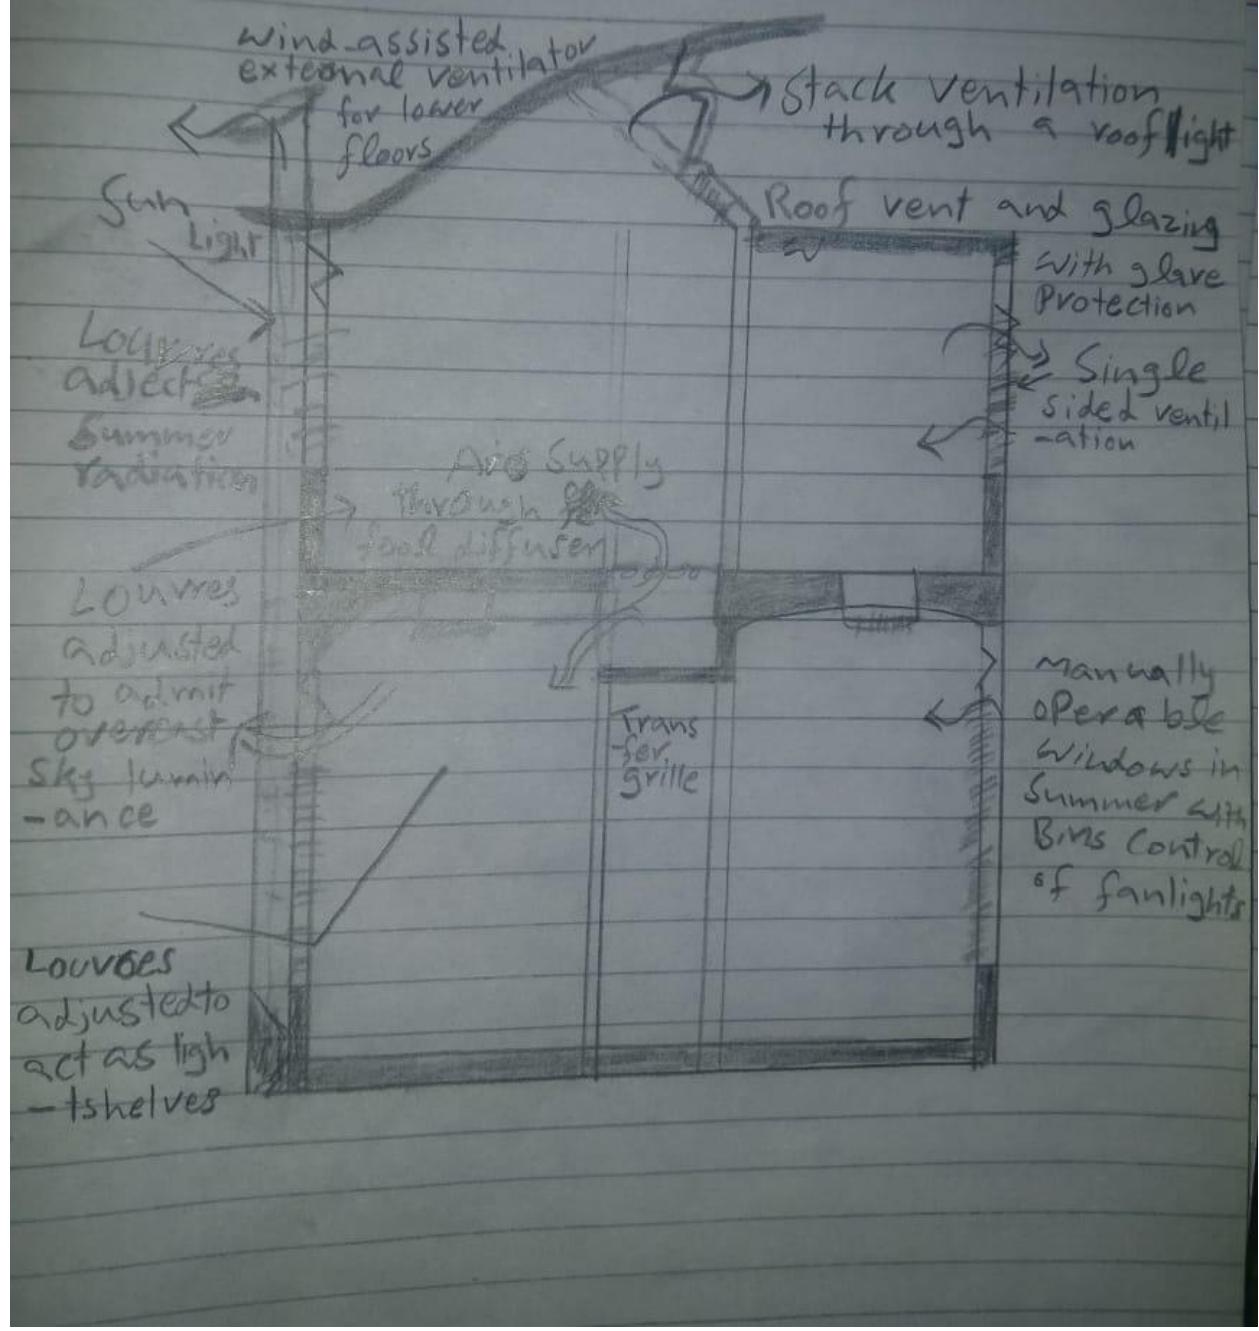 wind-assisted
external ventilator
for lower
floors
Stack ventilation
through a rooflight
Sun
Light
Roof vent and glazing
with glare
Protection
Louvres
adject
Summer
radiation
Single
sided ventil
-ation
Air Supply
through
diffuser
Louvres
adjusted
to admit
overcast
Sky lumin
-ance
Trans
-fer
grille
Manually
operable
Windows in
Summer with
Bms Control
of fanlights
Louvres
adjusted to
act as ligh
-tshelves